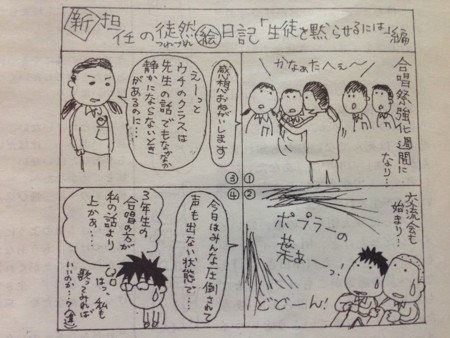 新担任の徒然絵日記「生徒を黙らせるには」編
つれづれ
①
合唱祭強化週間に
なり…
かなぁたへぇ〜
②
交流会も
始まり…
ポプラーの
葉ぁーっ!
どどーん!
③
感想おねがいします
えーっと
ウチのクラスは
先生の話でもなかなか
静かにならないとき
があるのに…
④
今日はみんな圧倒されて
声も出ない状態で…
3年生の
合唱の方が
私の話より
上かぁ…
はっ、私も
歌ってみれば
いいのか…